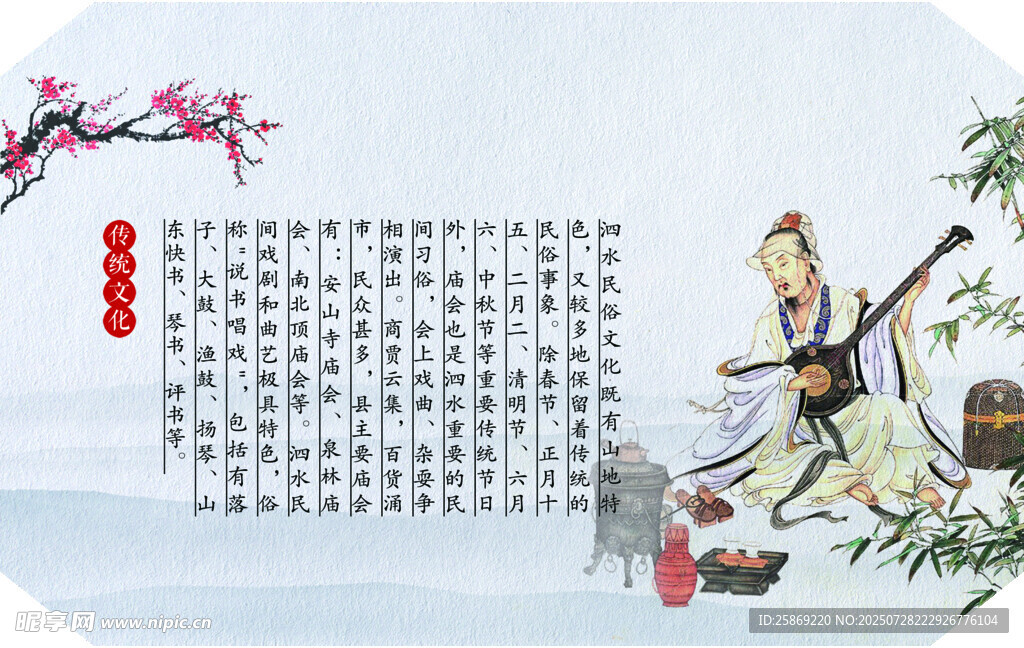 传统文化
泗水民俗文化既有山地特
色，又较多地保留着传统的
民俗事象。除春节、正月十
五、二月二、清明节、六月
六、中秋节等重要传统节日
外，庙会也是泗水重要的民
间习俗，会上戏曲、杂耍争
相演出。商贾云集，百货涌
市，民众甚多，县主要庙会
有：安山寺庙会、泉林庙
会、南北顶庙会等。泗水民
间戏剧和曲艺极具特色，俗
称"说书唱戏"，包括有落
子、大鼓、渔鼓、扬琴、山
东快书、琴书、评书等。
昵享网 www.nipic.cn
ID:25869220 NO:20250728222926776104